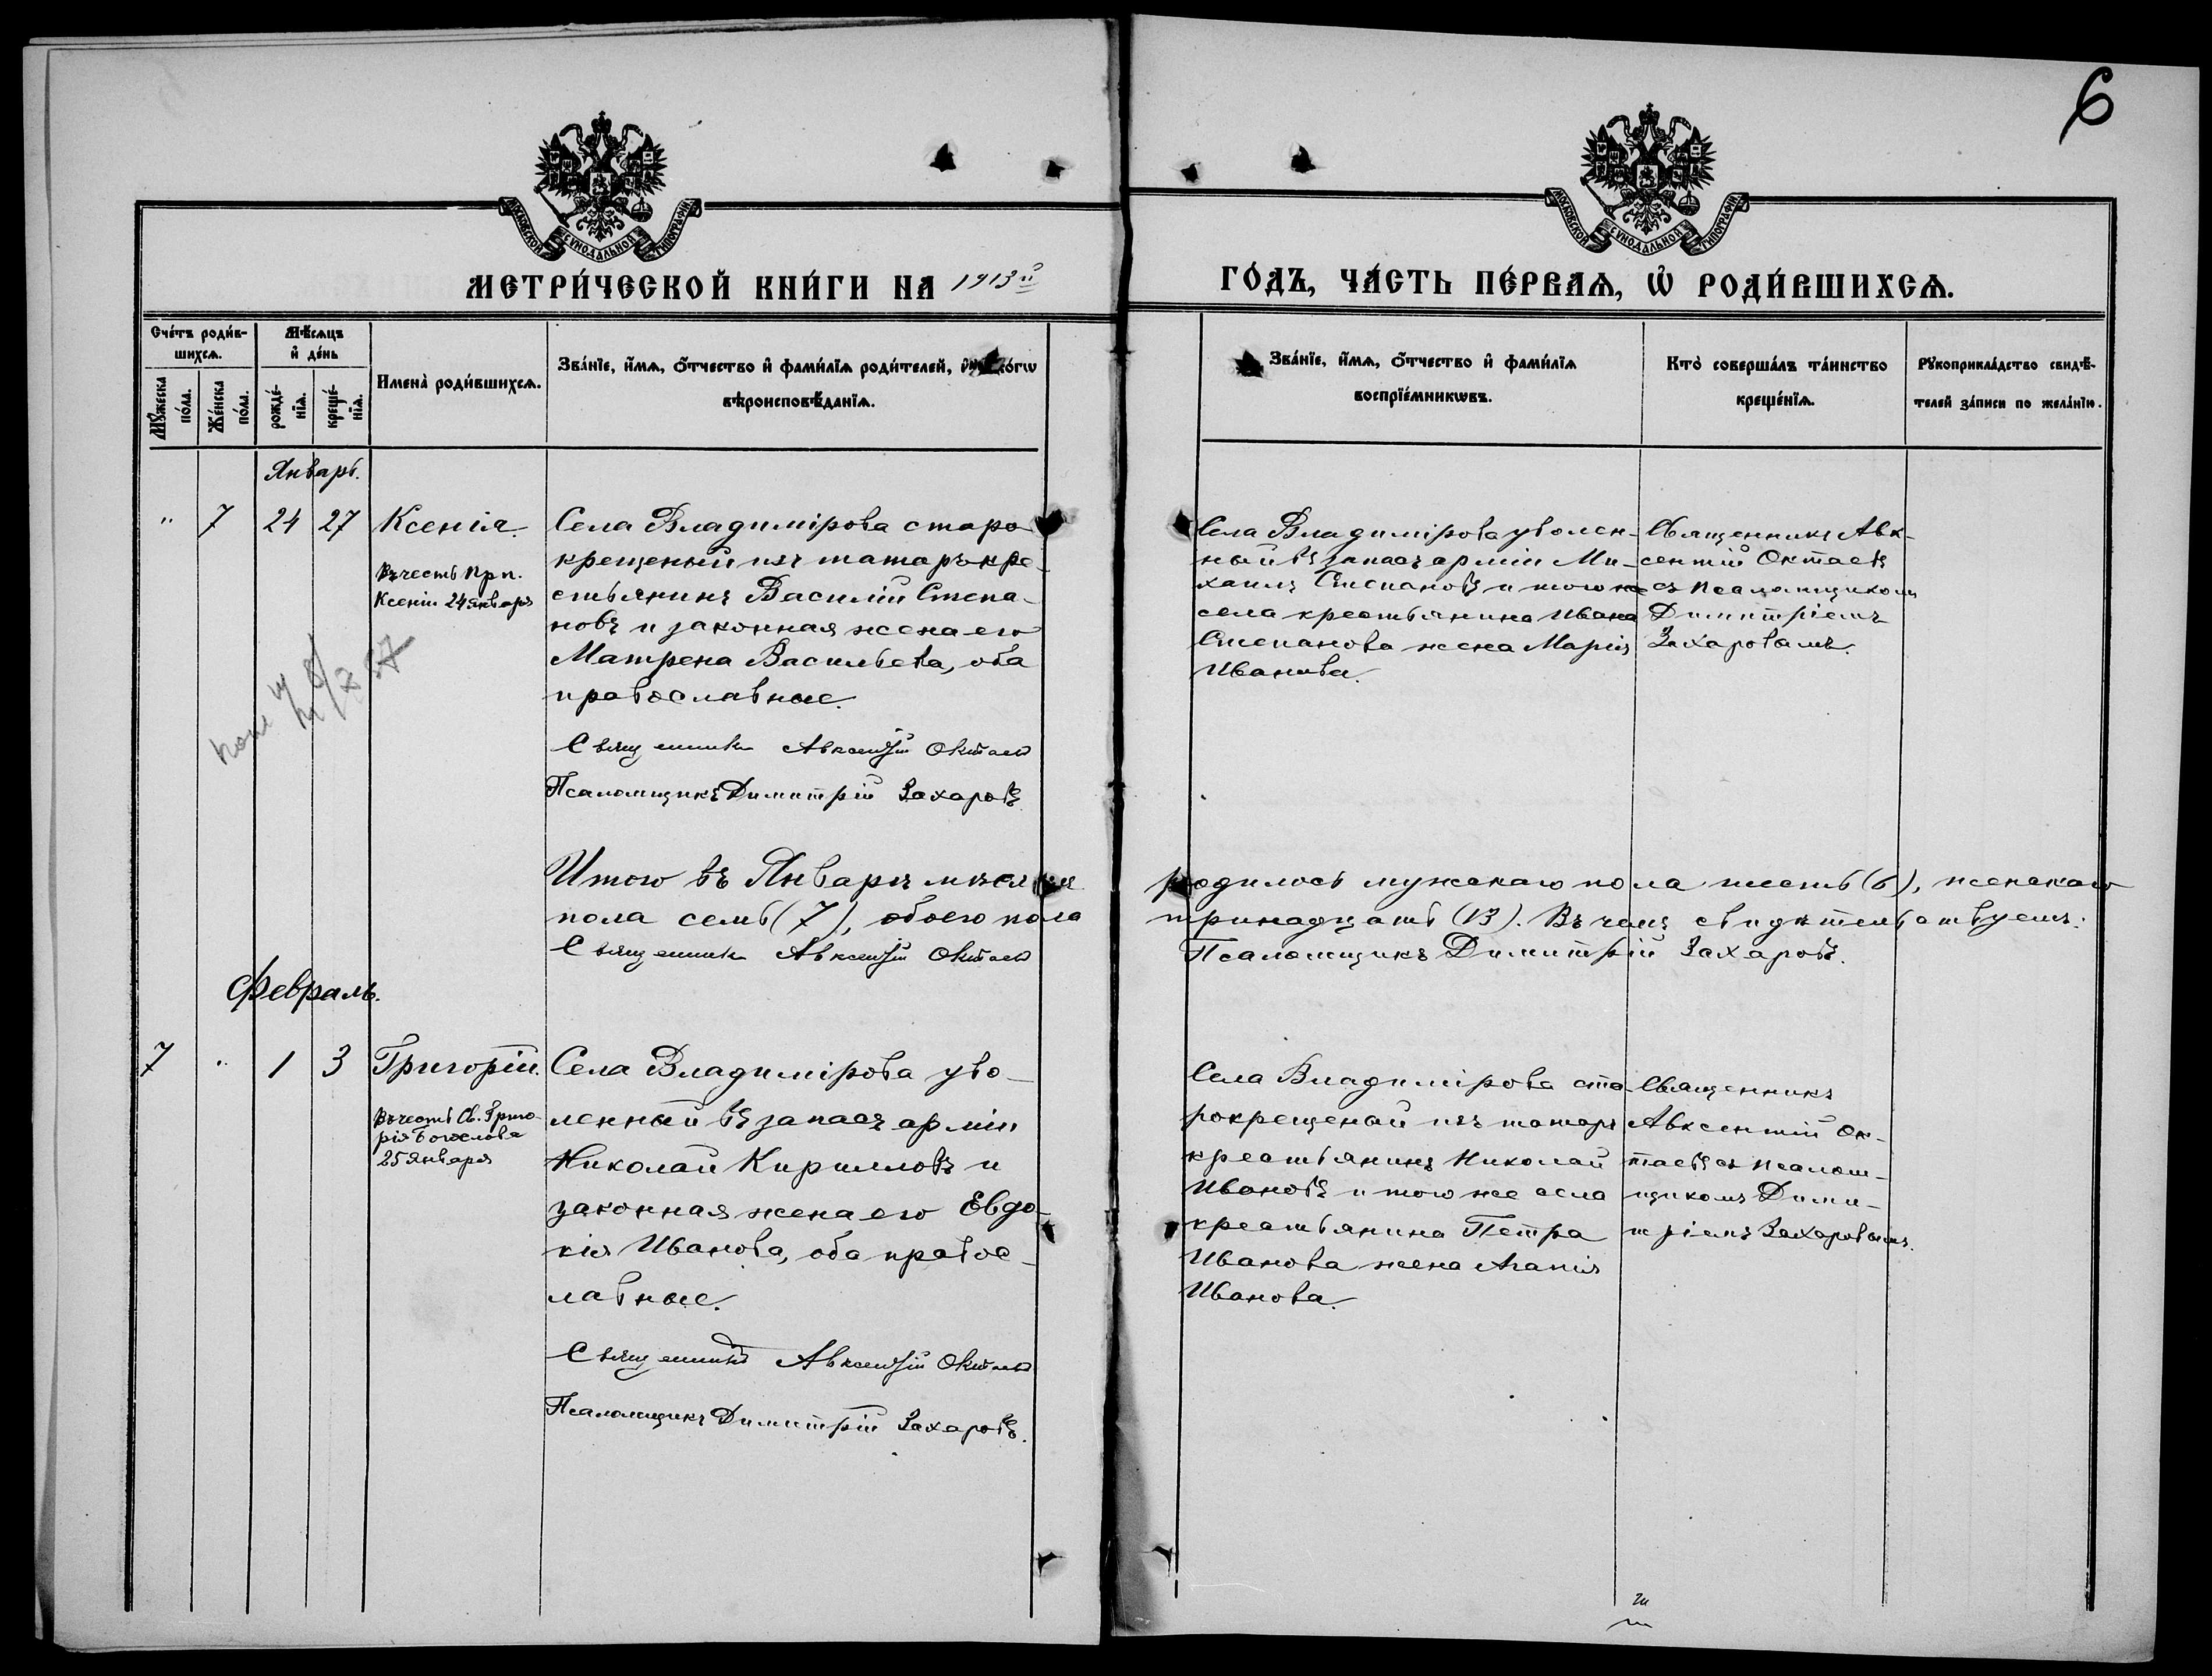 6
МОСКОВСКОЙ СѴНОДАЛЬНОЙ ТИПОГРАФІИ
МОСКОВСКОЙ СѴНОДАЛЬНОЙ ТИПОГРАФІИ
МЕТРИ́ЧЕСКОЙ КНИ́ГИ НА 1913й
ГО́ДЪ, ЧА́СТЬ ПЕ́РВАѦ, Ѡ҆ РОДИ́ВШИХСѦ.
Сче́тъ роди́в-
шихсѧ.
Мꙋ́жеска по́ла.
Же́нска по́ла.
Мѣ́сѧцъ
и҆ де́нь
рожде́-
нїѧ.
креще́-
нїѧ.
Имена̀ роди́вшихсѧ.
Зва́нїе, и҆́мѧ, ѻ҆́тчество и҆ фами́лїѧ роди́телей, и҆
вѣроисповѣ́данїѧ.
Зва́нїе, и҆́мѧ, ѻ҆́тчество и҆ фами́лїѧ
воспрїе́мникѡвъ.
Кто̀ соверша́лъ та́инство
креще́нїѧ.
Рꙋкоприкла́дство свидѣ́-
телей за́писи по жела́нїю.
Январь.
" 7 24 27 Ксенія.
Въ честь Прп.
Ксеніи 24 января
Села Владимірова старо
крещеный изъ татаръ кре-
стьянинъ Василій Степа-
новъ и законная жена его
Матрена Васильева, оба
православные.
Священникъ Авксентій Октаев
Псаломщикъ Димитрій Захаровъ.
Села Владимірова уволен-
ный въ запасъ арміи Ми-
хаилъ Степановъ и того же
села крестьянина Ивана
Степанова жена Марія
Иванова.
Священникъ Авк-
сентій Октаевъ
съ псаломщикомъ
Димитріемъ
Захаровымъ.
Итого въ Январѣ мѣсяцѣ родилось мужскаго пола шесть (6), женскаго
пола семь (7), обоего пола тринадцать (13). Въ чемъ свидѣтельствуемъ:
Священникъ Авксентій Октаев Псаломщикъ Димитрій Захаровъ.
Февраль.
7 " 1 3 Григорій.
Въ честь Св. Григо-
рія Богослова
25 января
Села Владимірова уво-
ленный въ запасъ арміи
Николай Кирилловъ и
законная жена его Евдо-
кія Иванова, оба правос-
лавные.
Священникъ Авксентій Октаев
Псаломщикъ Димитрій Захаровъ.
Села Владимірова ста
рокрещеный изъ татаръ
крестьянинъ Николай
Ивановъ и того же села
крестьянина Петра
Иванова жена Агапія
Иванова.
Священникъ
Авксентій Ок-
таевъ съ псалом-
щикомъ Дими-
тріемъ Захаровымъ.